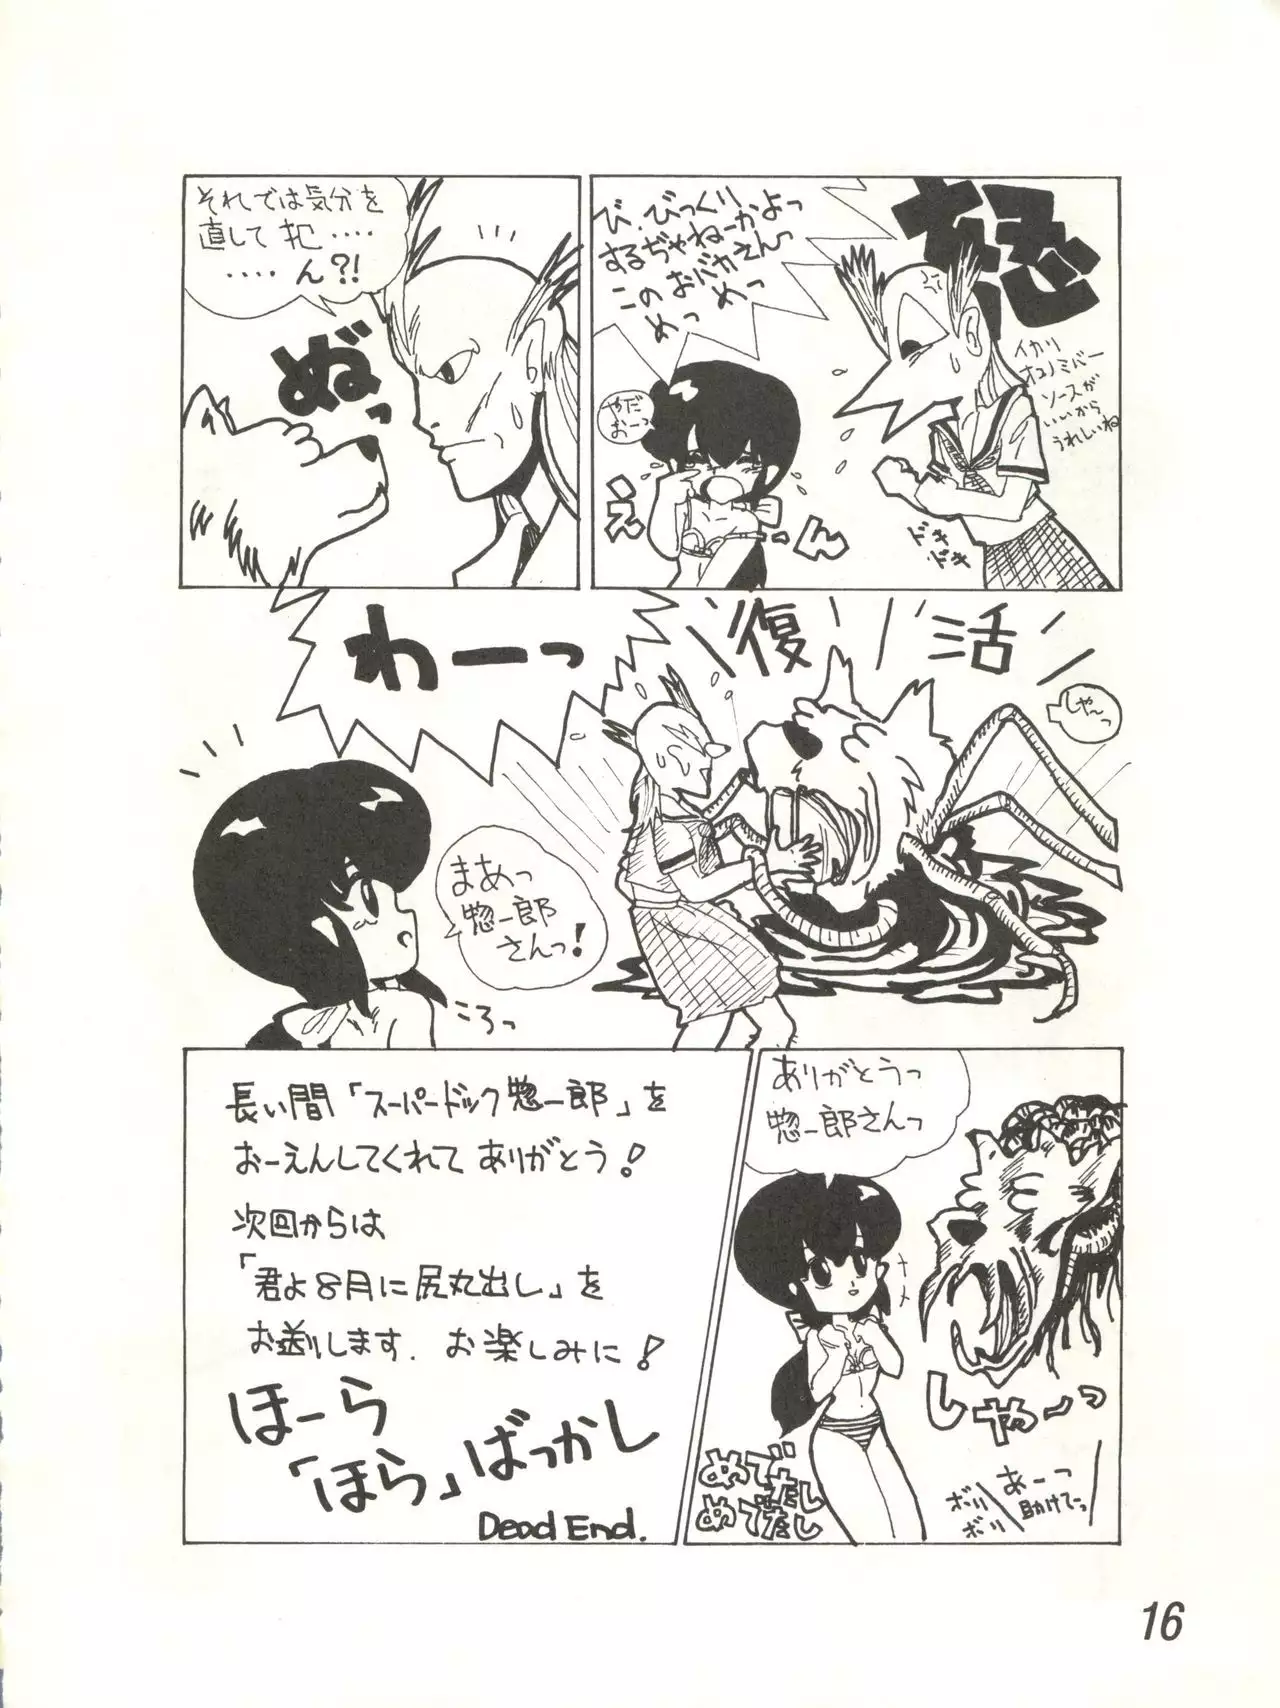 び、びっくり
するぢゃねーかよっ
このおバカえんっ
めっめっ
怒
イカリ
オコノミバー
ソースが
いいから
うれしいね
やだ
おーっ
え
ーん
ドキ
ドキ
それでは気分を
直して 犯‥‥
‥‥ん?!
ぬっ
復活
しゃーっ
わーっ
まあっ
惣一郎
さんっ!
ころっ
ありがとうっ
惣一郎さんっ
しゃーっ
あーっ
助けてーっ
ボリ
ボリ
めでたし
めでたし
長い間「スーパードック惣一郎」を
おーえんしてくれて ありがとう!
次回からは
「君よ8月に尻丸出し」を
お送りします. お楽しみに!
ほーら
「ほら」ばっかし
Dead End.
16